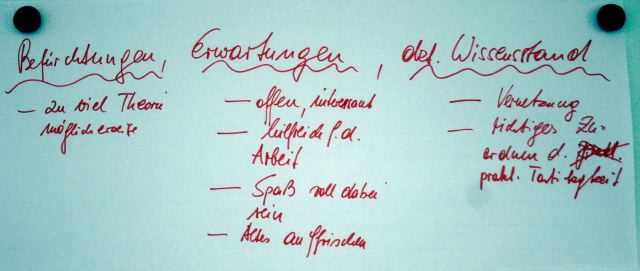 Befürchtungen, Erwartungen, det. Wissensstand
– zu viel Theorie
möglicherweise
– offen, interessant
– hilfreich f. d.
Arbeit
– Spaß soll dabei
sein
– Altes auffrischen
– Vernetzung
– richtiges Zu=
ordnen d.
prakt. Tätigkeit